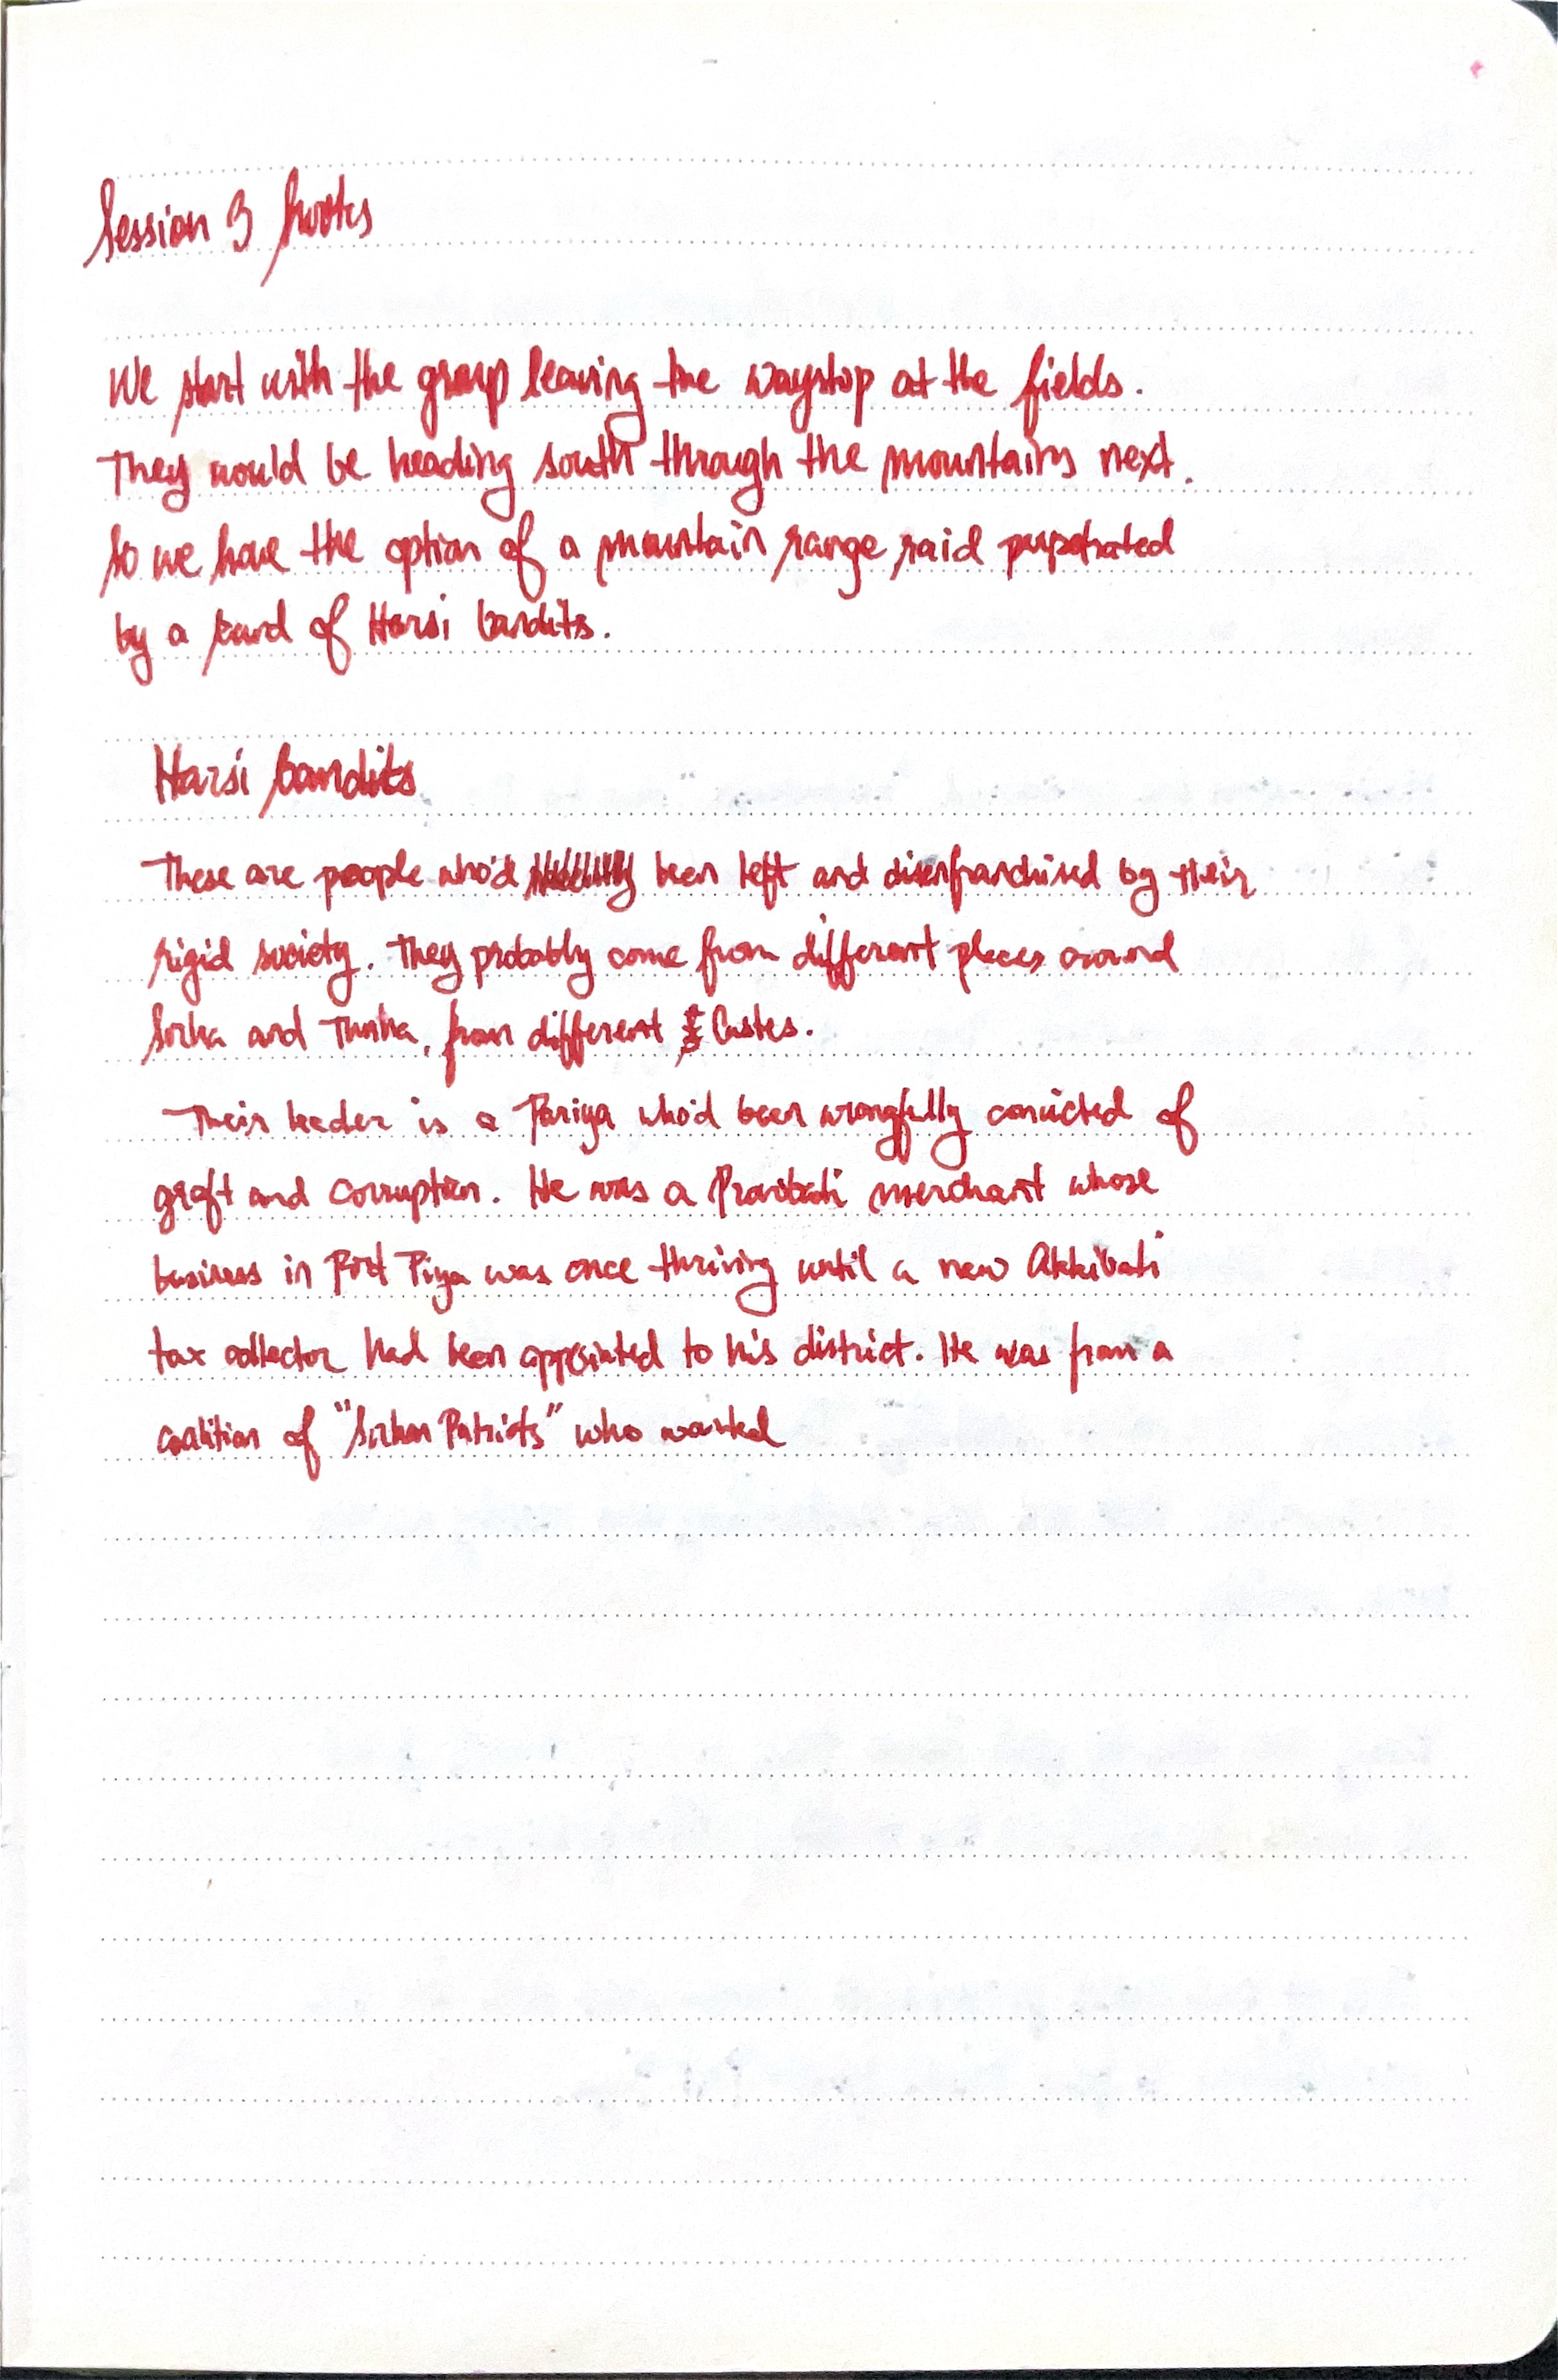 Session 3 Notes
We start with the group leaving the waystop at the fields.
They would be heading south through the mountains next.
So we have the option of a mountain range raid perpetrated
by a band of Harsi bandits.
Harsi bandits
These are people who'd been left and disenfranchised by their
rigid society. They probably come from different places around
and from different Castes.
Their leader is a Pariya who'd been wrongfully convicted of
graft and corruption. He was a merchant whose
business in Port Piya was once thriving until a new Akkibati
tax collector had been appointed to his district. He was from a
coalition of "Sirhan Patriots" who wanted